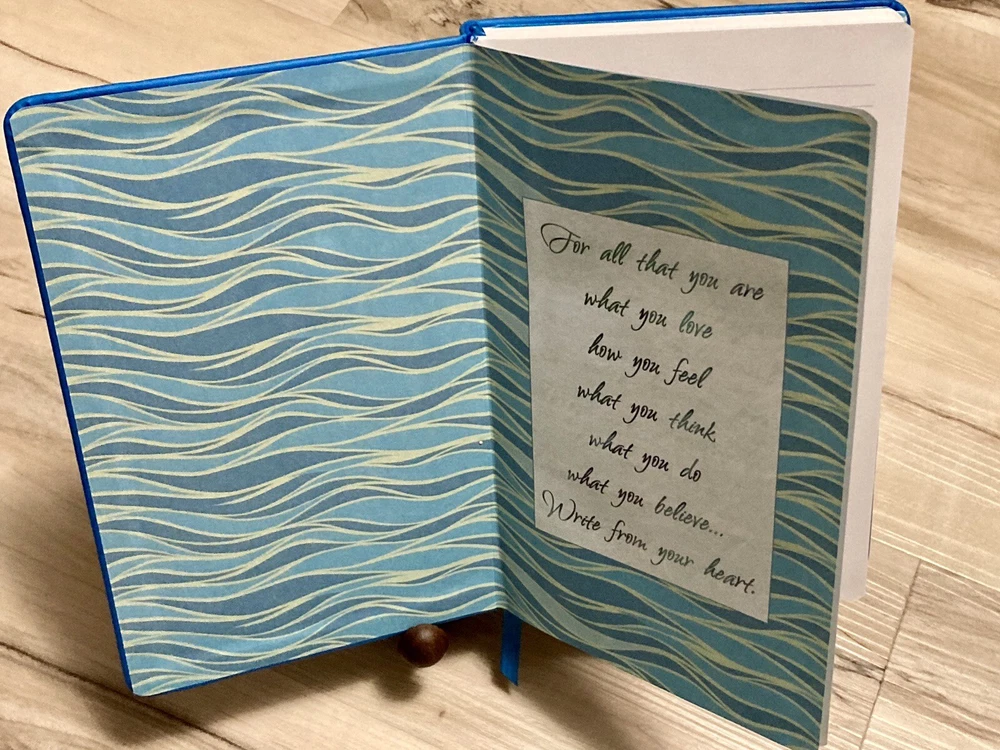 For all that you are
what you love
how you feel
what you think
what you do
what you believe...
Write from your heart.